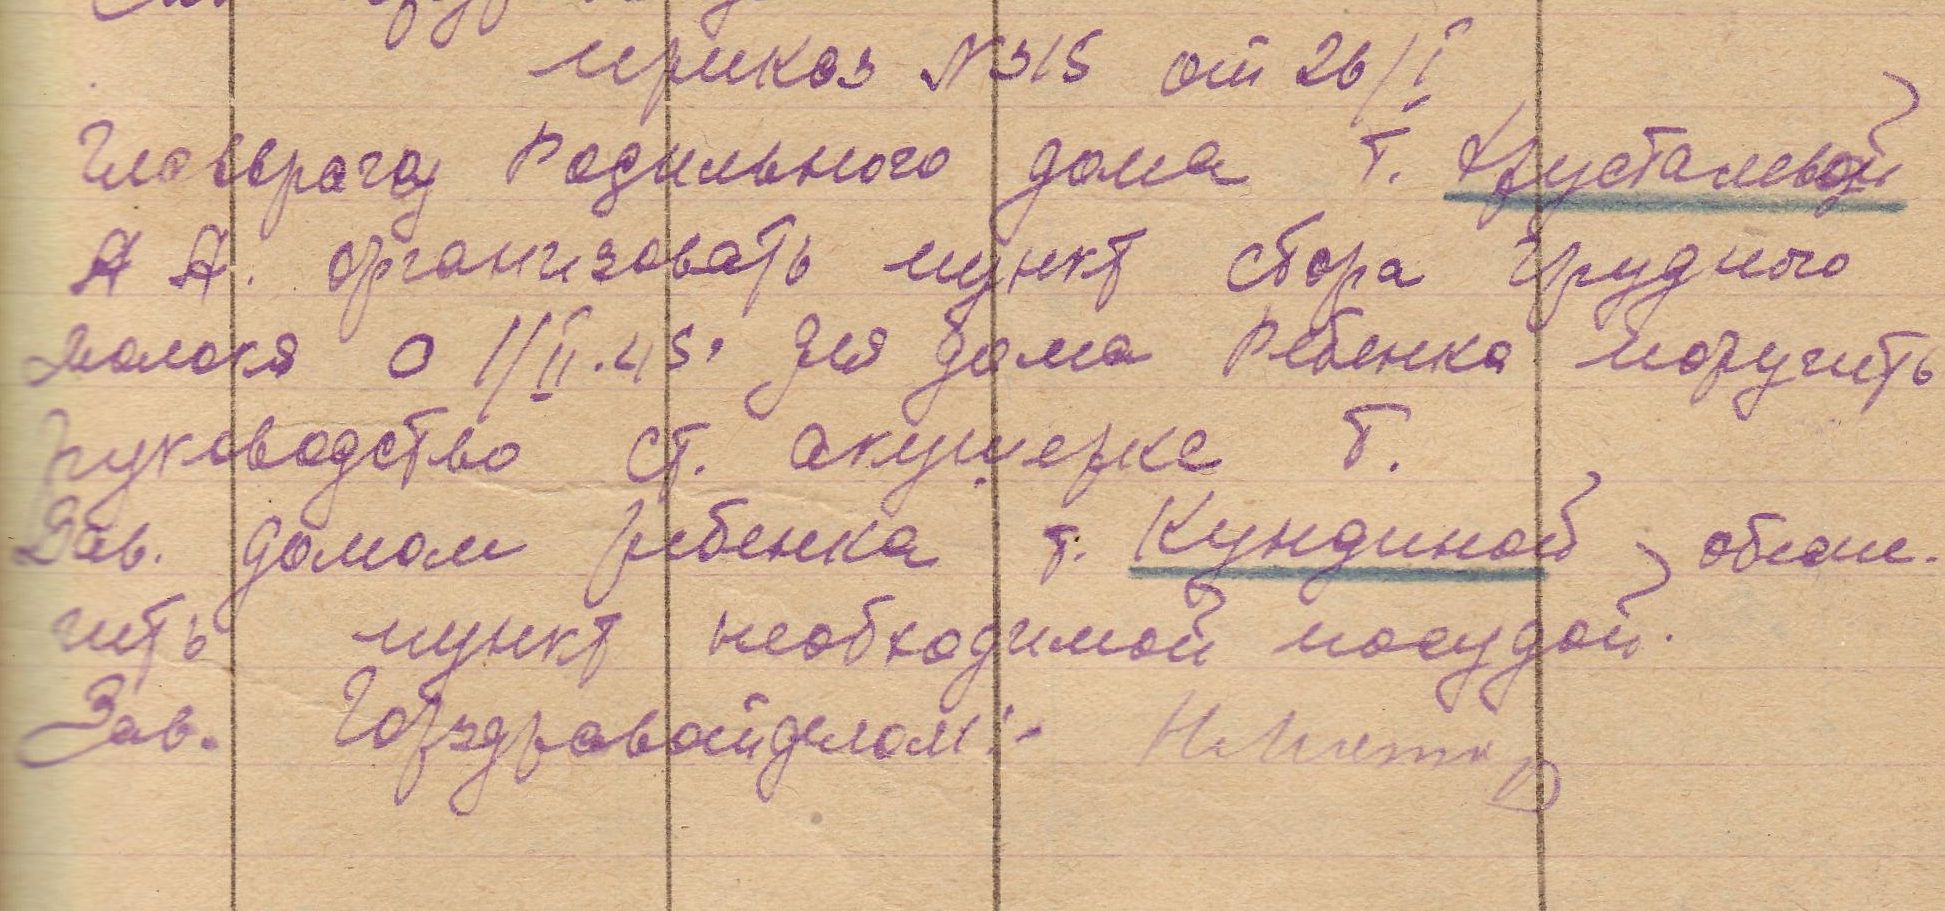 приказ №315 от 26/I
Главврачу Родильного дома т. Хрусталевой
А А. организовать пункт сбора грудного
молока с 1/II.45. для дома Ребенка поручить
руководство ст. акушерке т.
Зав. домом ребенка т. Кундиной обеспе-
чить пункт необходимой посудой.
Зав. Горздравотделом:-